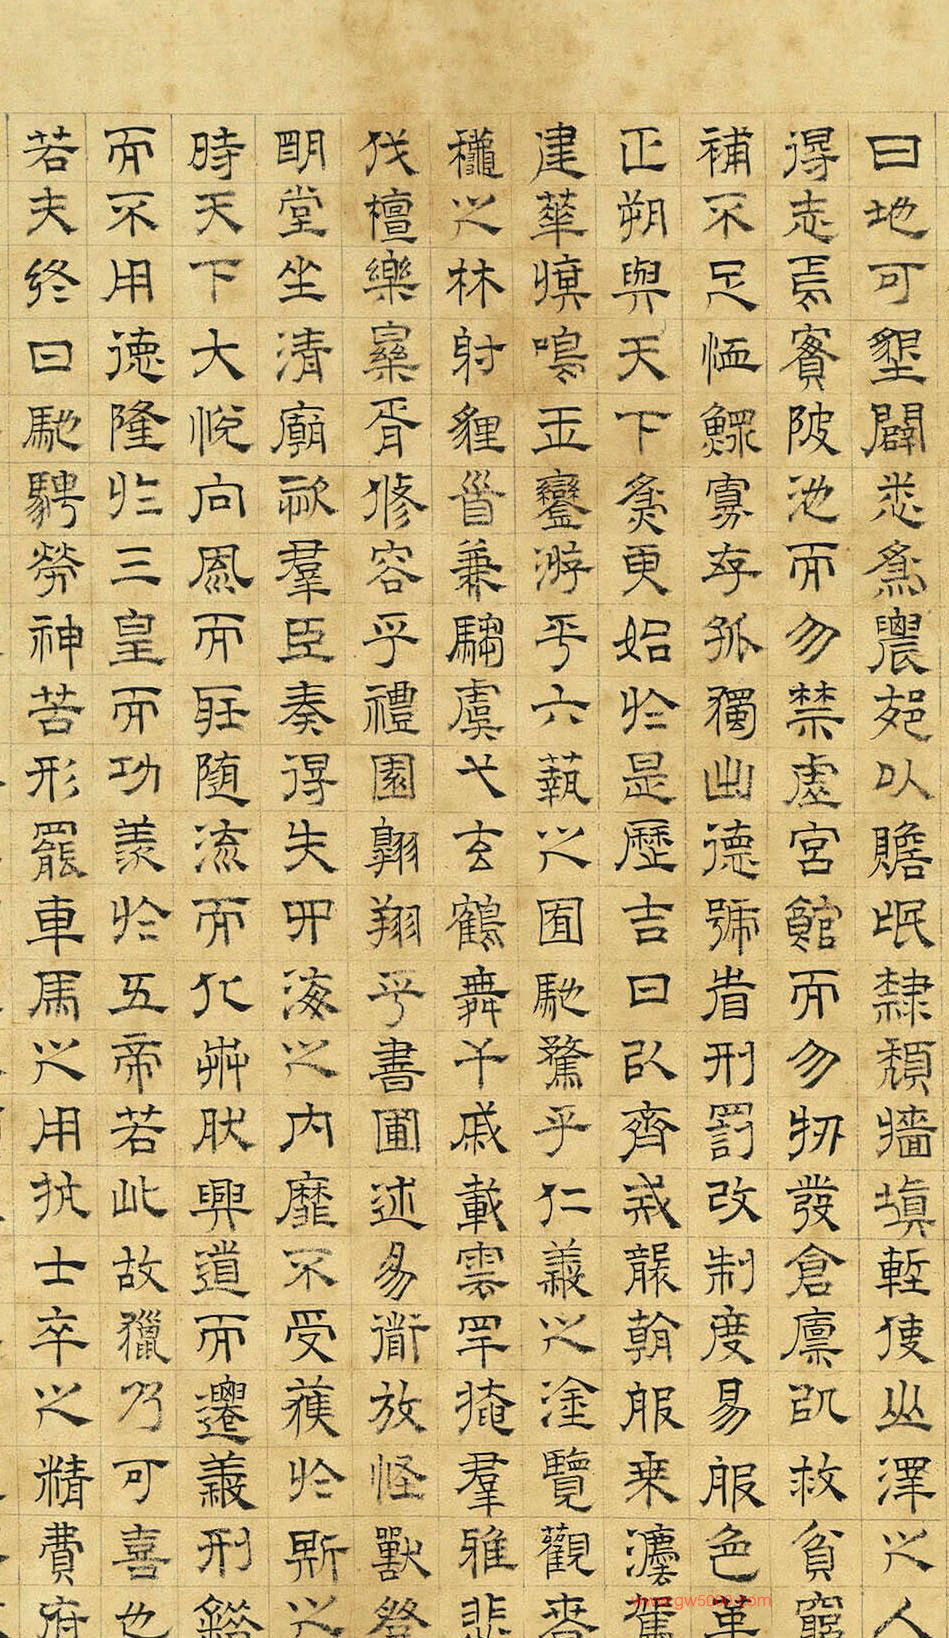 曰地可墾闢悉為農郊以贍氓隸頹牆填塹使山澤之人
得志焉實陂池而勿禁虛宮館而勿牣發倉廩以救貧窮
補不足恤鰥寡存孤獨出德號省刑罰改制度易服色革
正朔與天下為更始於是歷吉日以齊戒襲朝服乘灋駕
建華旗鳴玉鸞游乎六藝之囿馳騖乎仁義之塗覽觀春
龝之林射貍首兼騶虞弋玄鶴舞干戚載雲罕揜羣雅悲
伐檀樂樂胥修容乎禮園翱翔乎書圃述易道放怪獸登
明堂坐清廟次羣臣奏得失四海之內靡不受獲於斯之
時天下大悅向風而聽隨流而化卉然興道而遷義刑錯
而不用德隆於三皇而功羨於五帝若此故獵乃可喜也
若夫終日馳騁勞神苦形罷車馬之用抗士卒之精費府